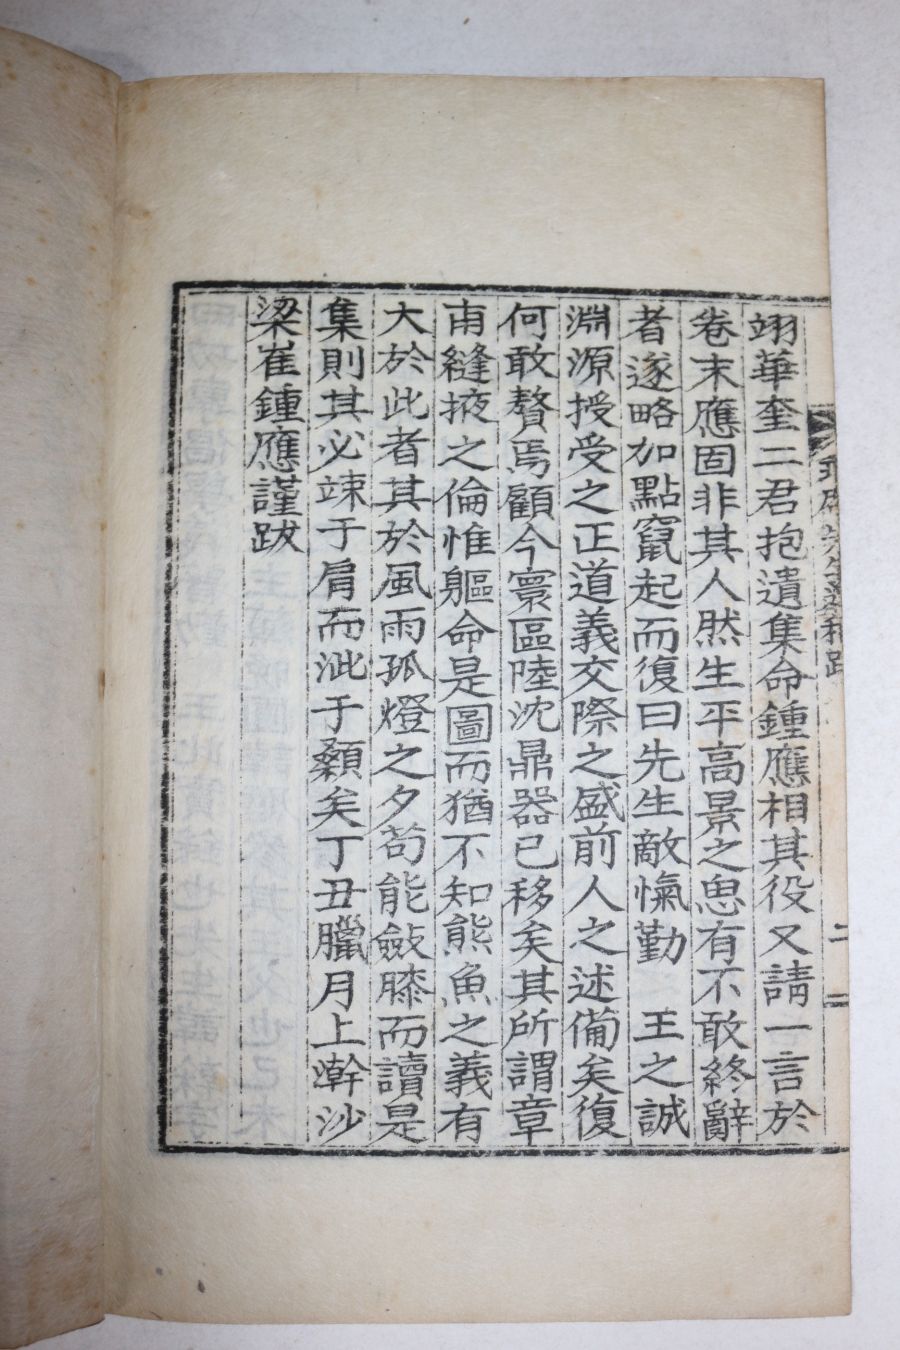 翊華奎二君抱遺集命鍾應相其役又請一言於
卷末應固非其人然生平高景之思有不敢終辭
者遂略加點竄起而復曰先生敵愾勤 王之誠
淵源授受之正道義交際之盛前人之述備矣復
何敢贅焉顧今寰區陸沈鼎器已移矣其所謂章
甫縫掖之倫惟軀命是圖而猶不知熊魚之義有
大於此者其於風雨孤燈之夕苟能斂膝而讀是
集則其必竦于肩而泚于顙矣丁丑臘月上澣沙
梁崔鍾應謹跋